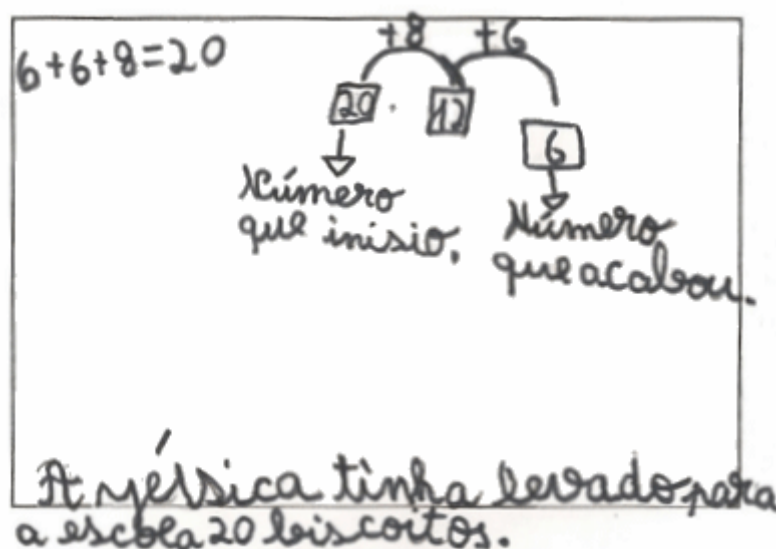 6+6+8=20
+8 +6
20 12
6
Número
que inisio.
Número
que acabou.
A Jéssica tinha levado para
a escola 20 biscoitos.